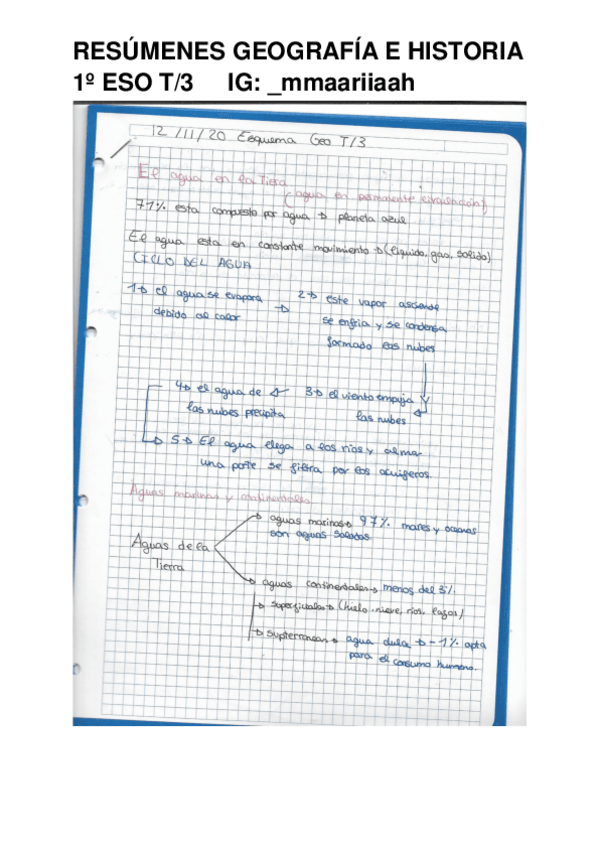 RESÚMENES GEOGRAFÍA E HISTORIA
1º ESO T/3 IG: _mmaariiaah
12/11/20 Esquema Geo T/3
El agua en la Tierra
(agua en permanente circulación)
71% esta compuesto por agua → planeta azul
El agua esta en constante movimiento → (líquido, gas, sólido)
CICLO DEL AGUA
1→ el agua se evapora
debido al calor
→
2→ este vapor asciende
se enfria y se condensa
formado las nubes
3→ el viento empuja
las nubes
4→ el agua de
las nubes precipita
5→ El agua llega a los ríos y al mar
una parte se filtra por los acuiferos.
Aguas marinas y continentales
Aguas de la
Tierra
aguas marinas → 97% mares y oceanos
son aguas saladas
aguas continentales → menos del 3%
→ superficiales → (hielo, nieve, ríos, lagos)
→ subterraneas → agua dulce → -1% apta
para el consumo humano.